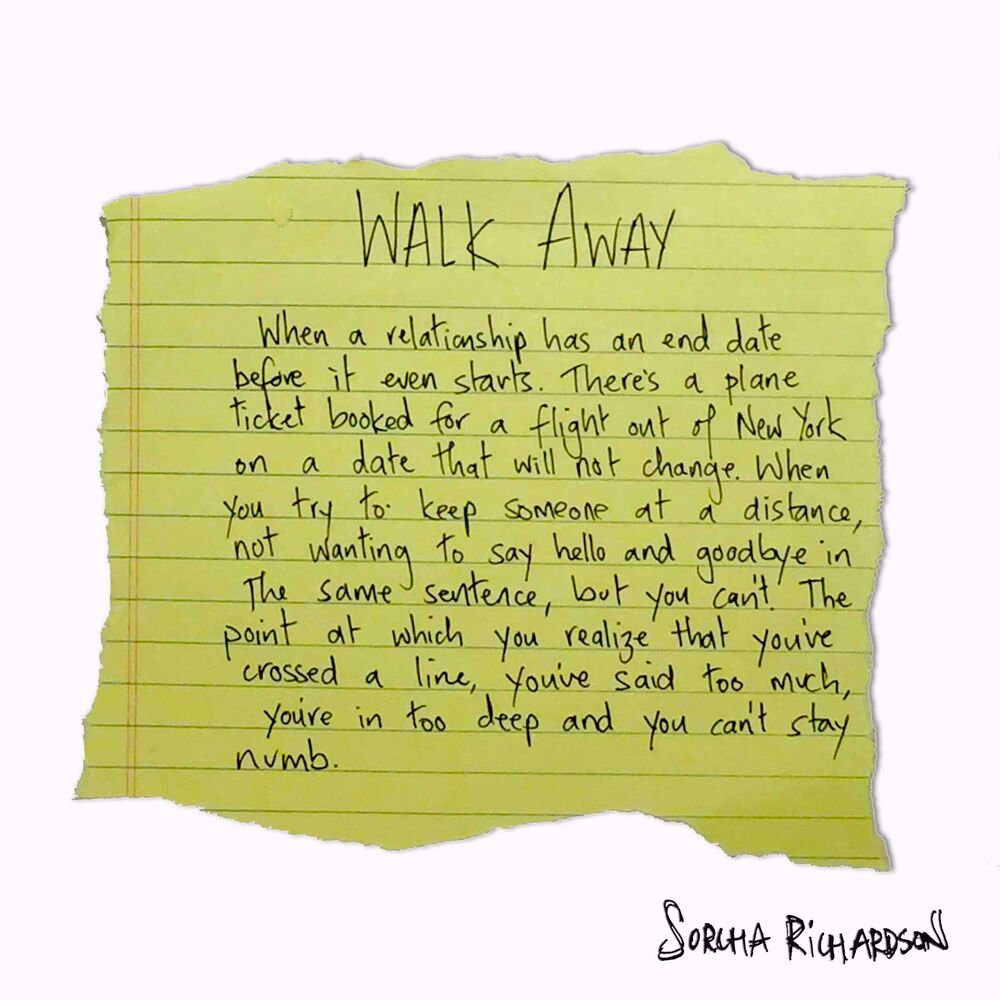 WALK AWAY
When a relationship has an end date
before it even starts. There's a plane
ticket booked for a flight out of New York
on a date that will not change. When
you try to keep someone at a distance,
not wanting to say hello and goodbye in
the same sentence, but you can't. The
point at which you realize that you've
crossed a line, you've said too much,
you're in too deep and you can't stay
numb.
SORCHA RICHARDSON